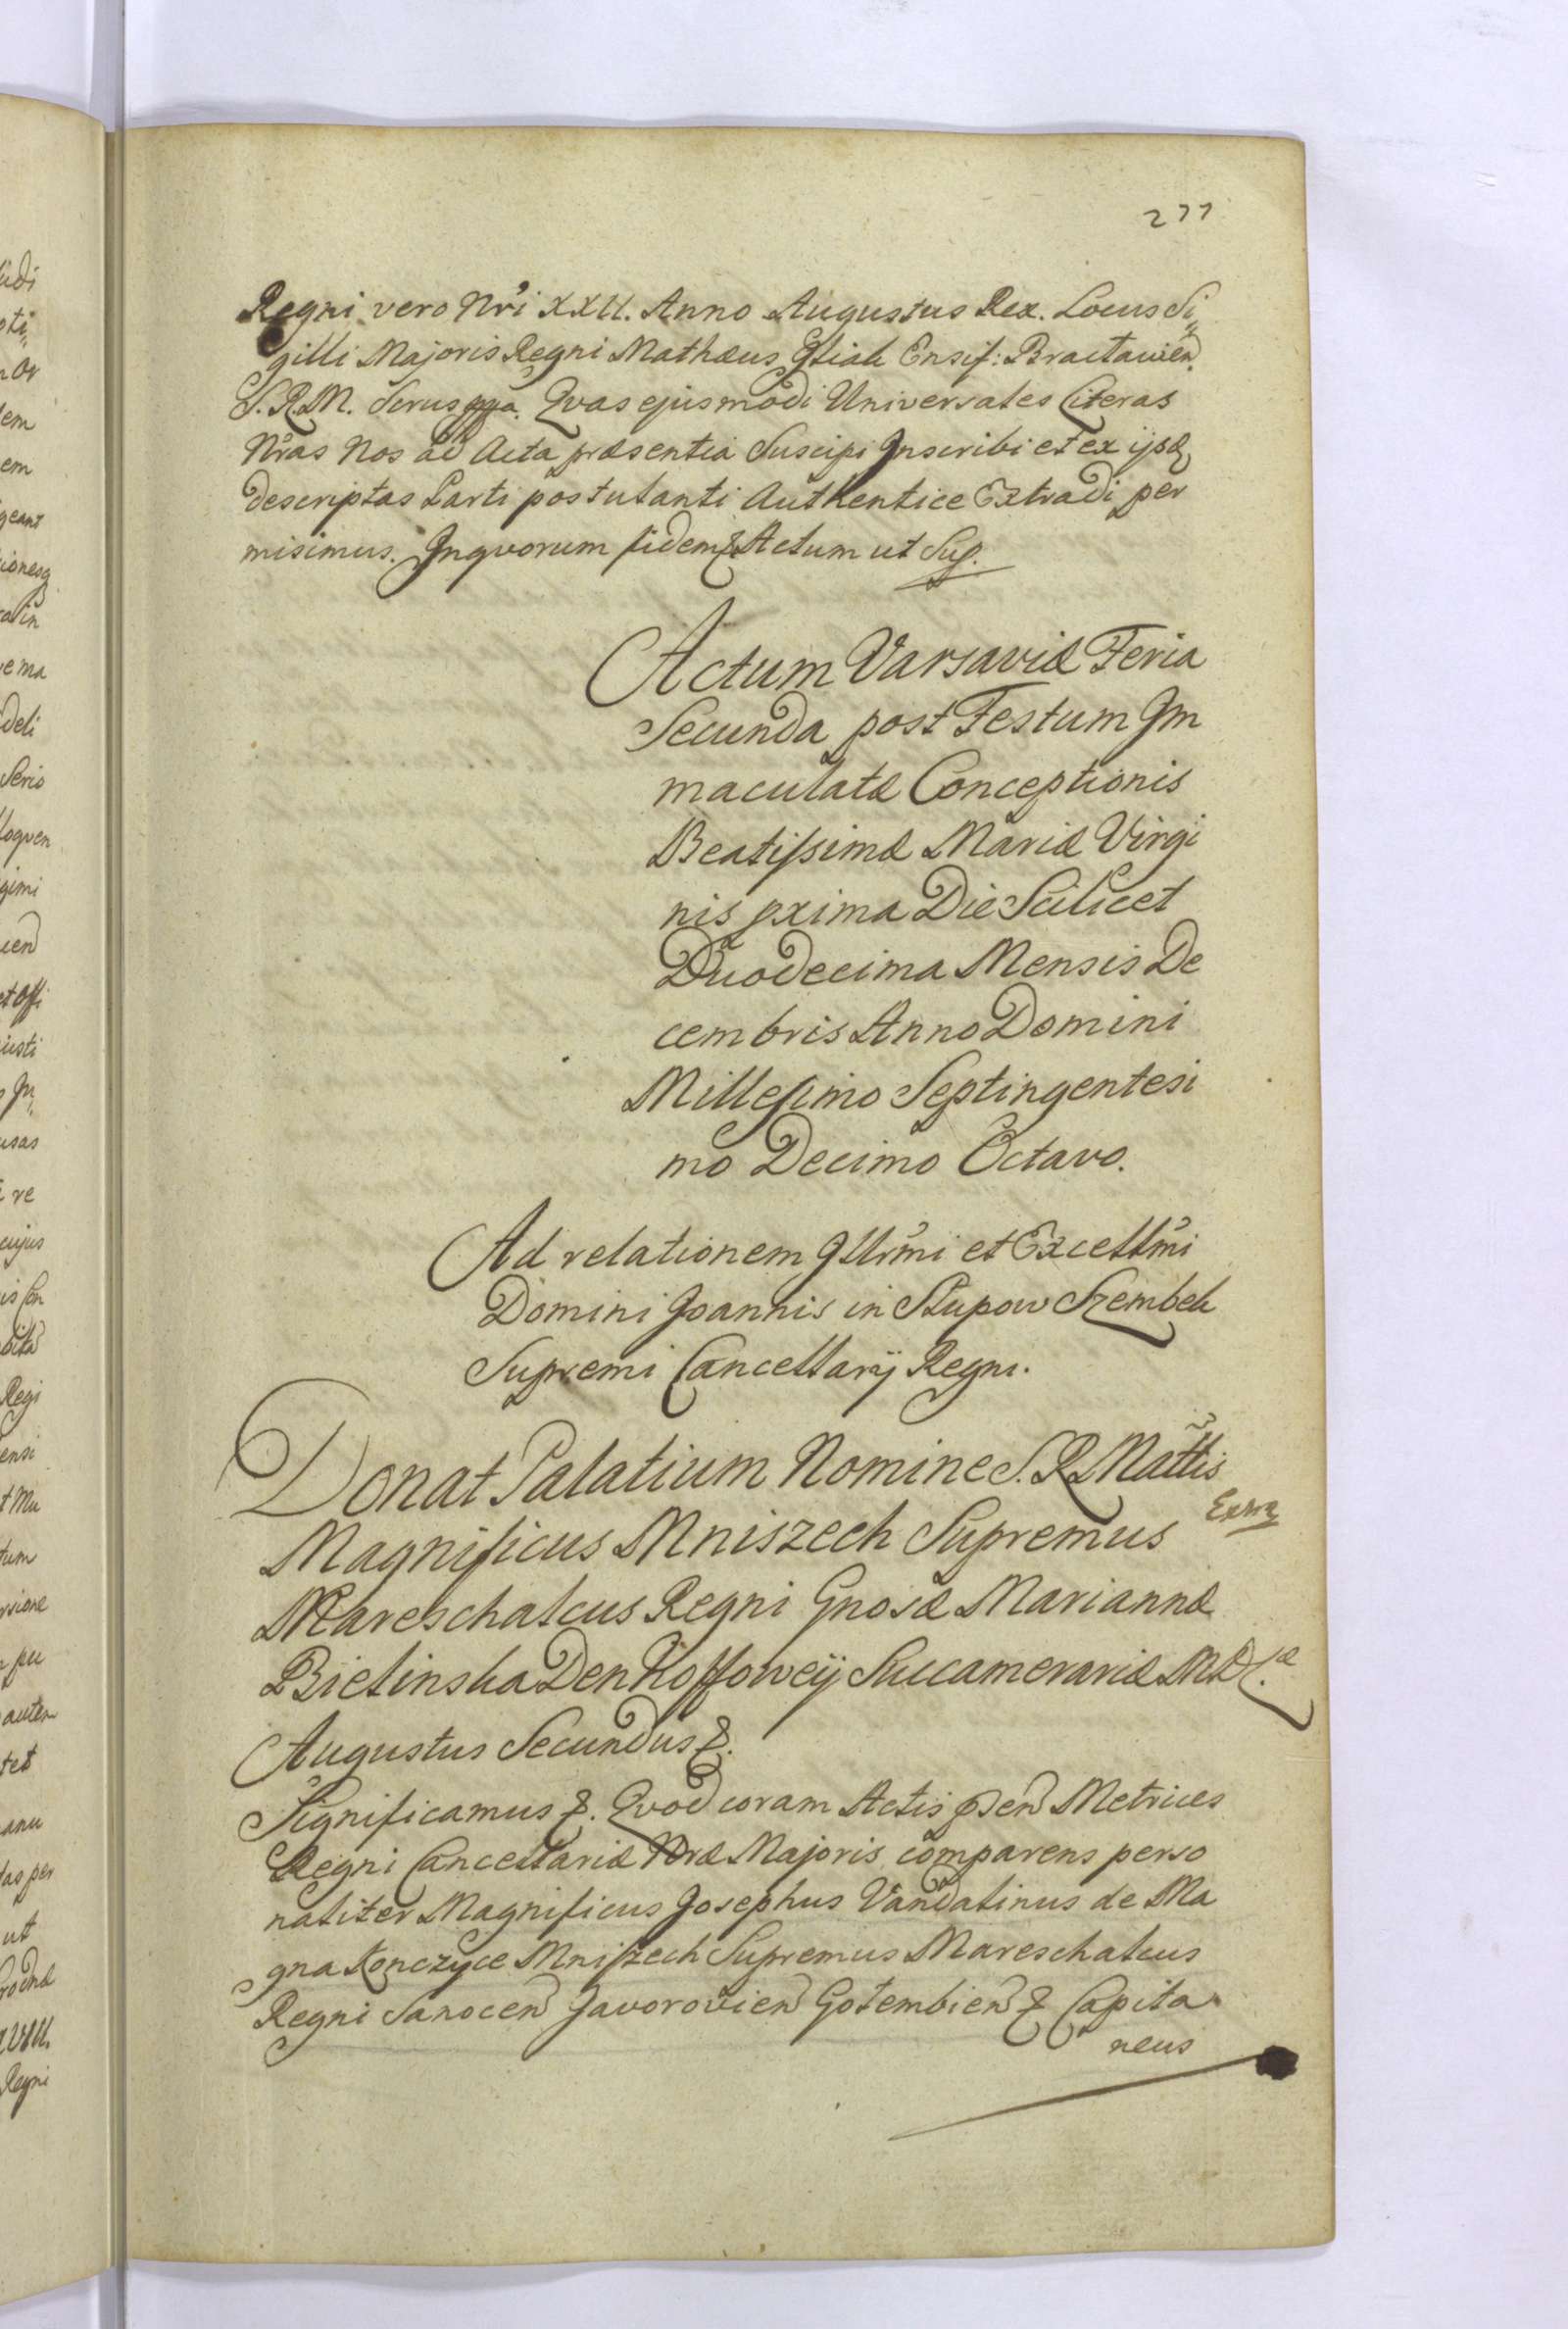 277
Regni vero Nr̃i XXII. Anno Augustus Rex. Locus Si„
gilli Majoris Regni Mathæus Ensif: Bractavień
S.R.M. Sctrus Qvas ejusmodi Universales Literas
Nr̃as Nos ad Acta præsentia Suscipi Inscribi et ex ijsd
descriptas Parti postulanti Authentice Extradi per
misimus. Inqvorum fidem & Actum ut Sup.
Actum Varsaviæ Feria
Secunda post Festum Im
maculatæ Conceptionis
Beatissimæ Mariæ Virgi
nis pxima Die Scilicet
Duodecima Mensis De
cembris Anno Domini
Millesimo Septingentesi
mo Decimo Octavo.
Ad relationem Illr̃mi et Excellm̃i
Domini Joannis in Słupow Szembek
Supremi Cancellarij Regni.
Donat Palatium Nomine S.R.Mattis
Extra
Magnificus Mniszech Supremus
Mareschalcus Regni Gnosæ Mariannæ
Bielinska Denhoffoweij Succamerariæ M.D.L.æ
Augustus Secundus &.
Significamus &. Qvod coram Actis pseñ Metrices
Regni Cancellariæ Nræ Majoris comparens perso
naliter Magnificus Josephus Vandalinus de Ma
gna Konczyce Mniszech Supremus Mareschalcus
Regni Sanoceñ Javorovieñ Golembieñ & Capita
neus